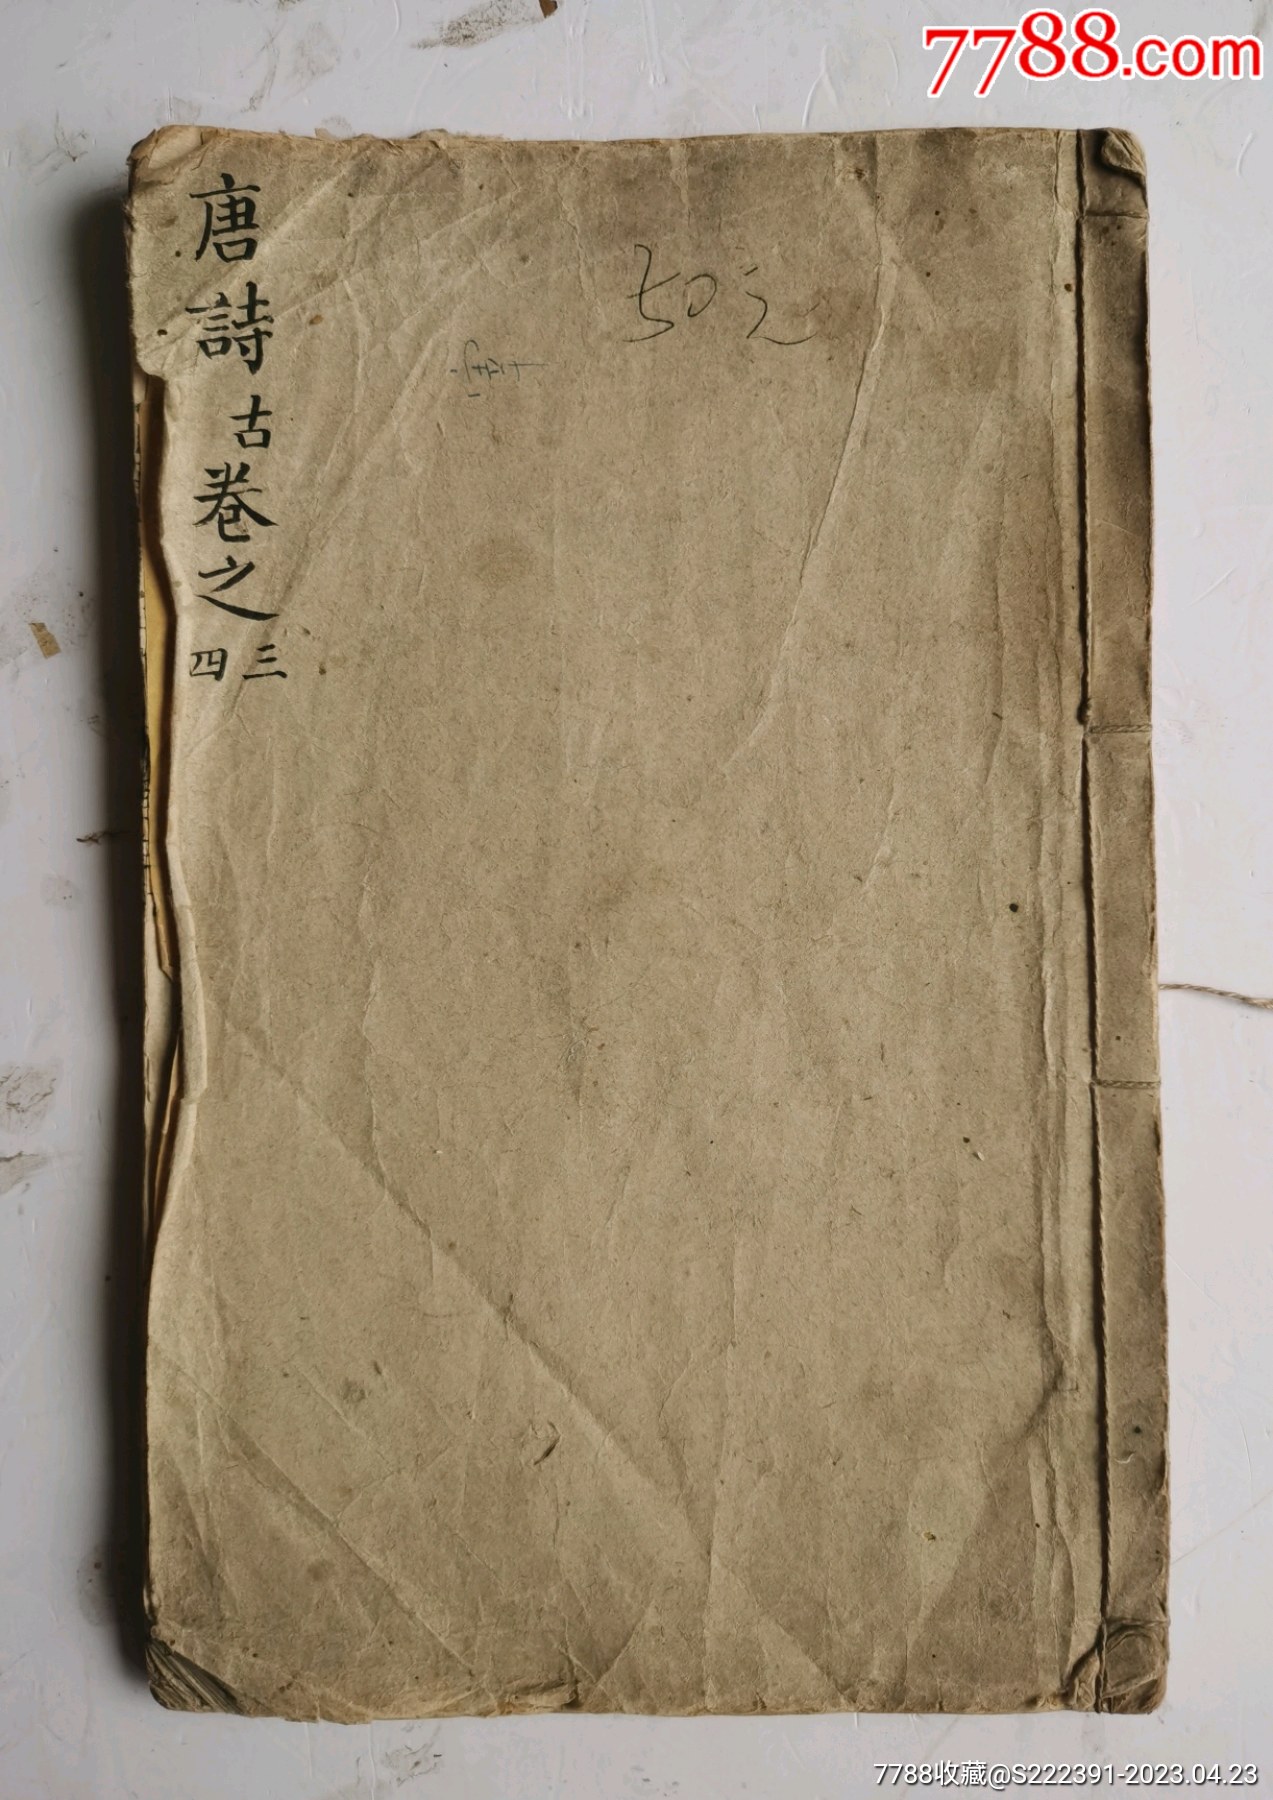 7788.com
唐詩古卷之三四
50元
7788收藏@S222391-2023.04.23